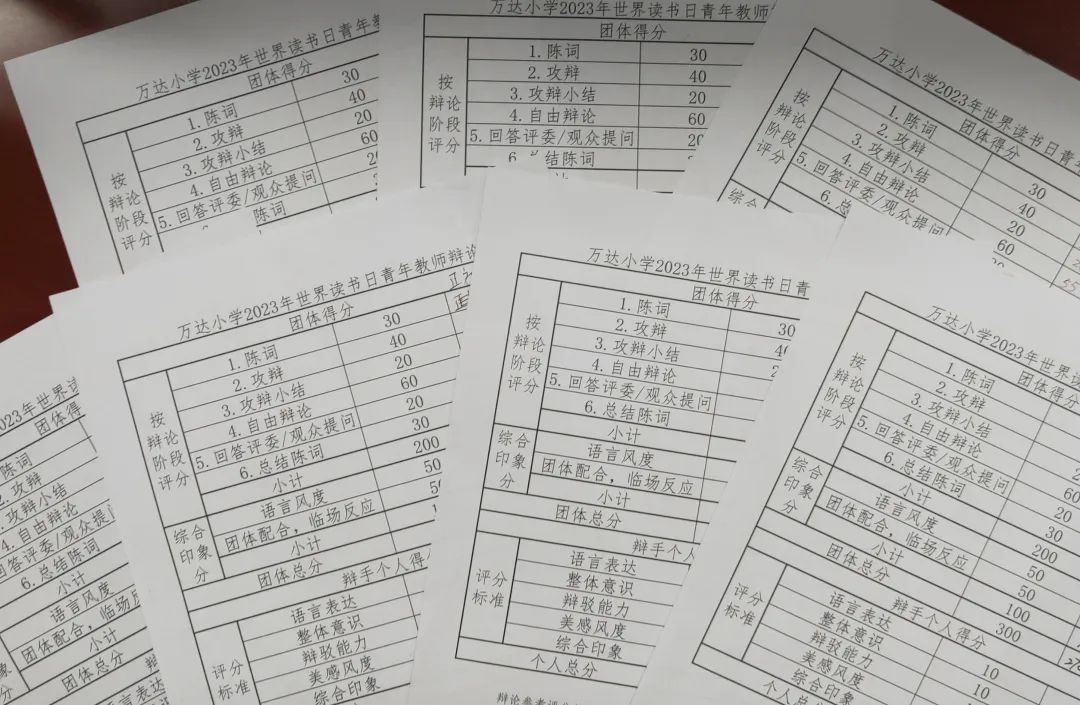 万达小学2023年世界读书日青年教
团体得分
按
辩论
阶段
评分
1.陈词 30
2.攻辩 40
3.攻辩小结 20
4.自由辩论 60
5.回答评委/观众提问
陈词
万达小学2023年世界读书日青年教师
团体得分
按
辩论
阶段
评分
1.陈词 30
2.攻辩 40
3.攻辩小结 20
4.自由辩论 60
5.回答评委/观众提问 20
6.总结陈词
万达小学2023年世界读书日青年
团体得分
按
辩论
阶段
评分
1.陈词 30
2.攻辩 40
3.攻辩小结 20
4.自由辩论 60
5.回答评委/观众提问
6.总
综合
023年世界读书日
团体得
陈词
攻辩
攻辩小结
4.自由辩论
回答评委/观众提
6.总结陈词
小计
语言风度
团体配合，临场反
小计
团体总分
语言表达
万达小学2023年世界读书日青年教师辩论
团体得分
按
辩论
阶段
评分
1.陈词 30
2.攻辩 40
3.攻辩小结 20
4.自由辩论 60
5.回答评委/观众提问 20
6.总结陈词 30
小计 200
综合
印象
分
语言风度 50
团体配合，临场反应
小计
团体总分
辩手个人得
评分
标准
语言表达
整体意识
辩驳能力
美感风度
综合印象
万达小学2023年世界读书日青年
团体得分
按
辩论
阶段
评分
1.陈词 30
2.攻辩
3.攻辩小结
4.自由辩论
5.回答评委/观众提问
6.总结陈词
小计
综合
印象
分
语言风度
团体配合，临场反应
小计
团体总分
辩手个人
评分
标准
语言表达
整体意识
辩驳能力
美感风度
综合印象
个人总分
万达小学2023年世界读书日
团体得分
按
辩论
阶段
评分
1.陈词
2.攻辩
3.攻辩小结
4.自由辩论 60
5.回答评委/观众提问 20
6.总结陈词 30
小计 200
综合
印象
分
语言风度 50
团体配合，临场反应 50
小计 100
团体总分 300
辩手个人得分
评分
标准
语言表达 10
整体意识 10
辩驳能力
美感风度
综合印象
个人总